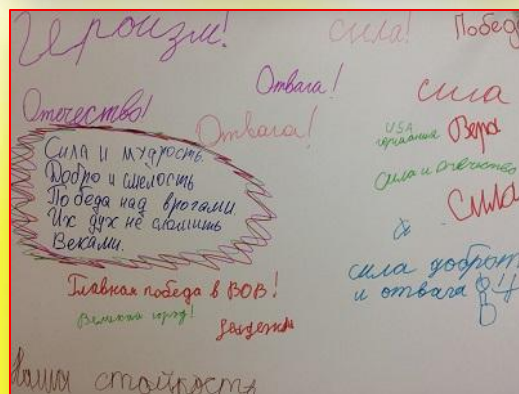 Героизм!
Сила!
Побед
Отвага!
сила
Отечество!
Отвага!
USA
германия
Вера
Сила и мудрость.
Добро и смелость
Победа над врогами.
Их дух не сломить
Веками.
Сила и отечество
Сила
&
сила доброта
и отвага
Главная победа в ВОВ!
Великий город!
Надежда
Наша стойкость